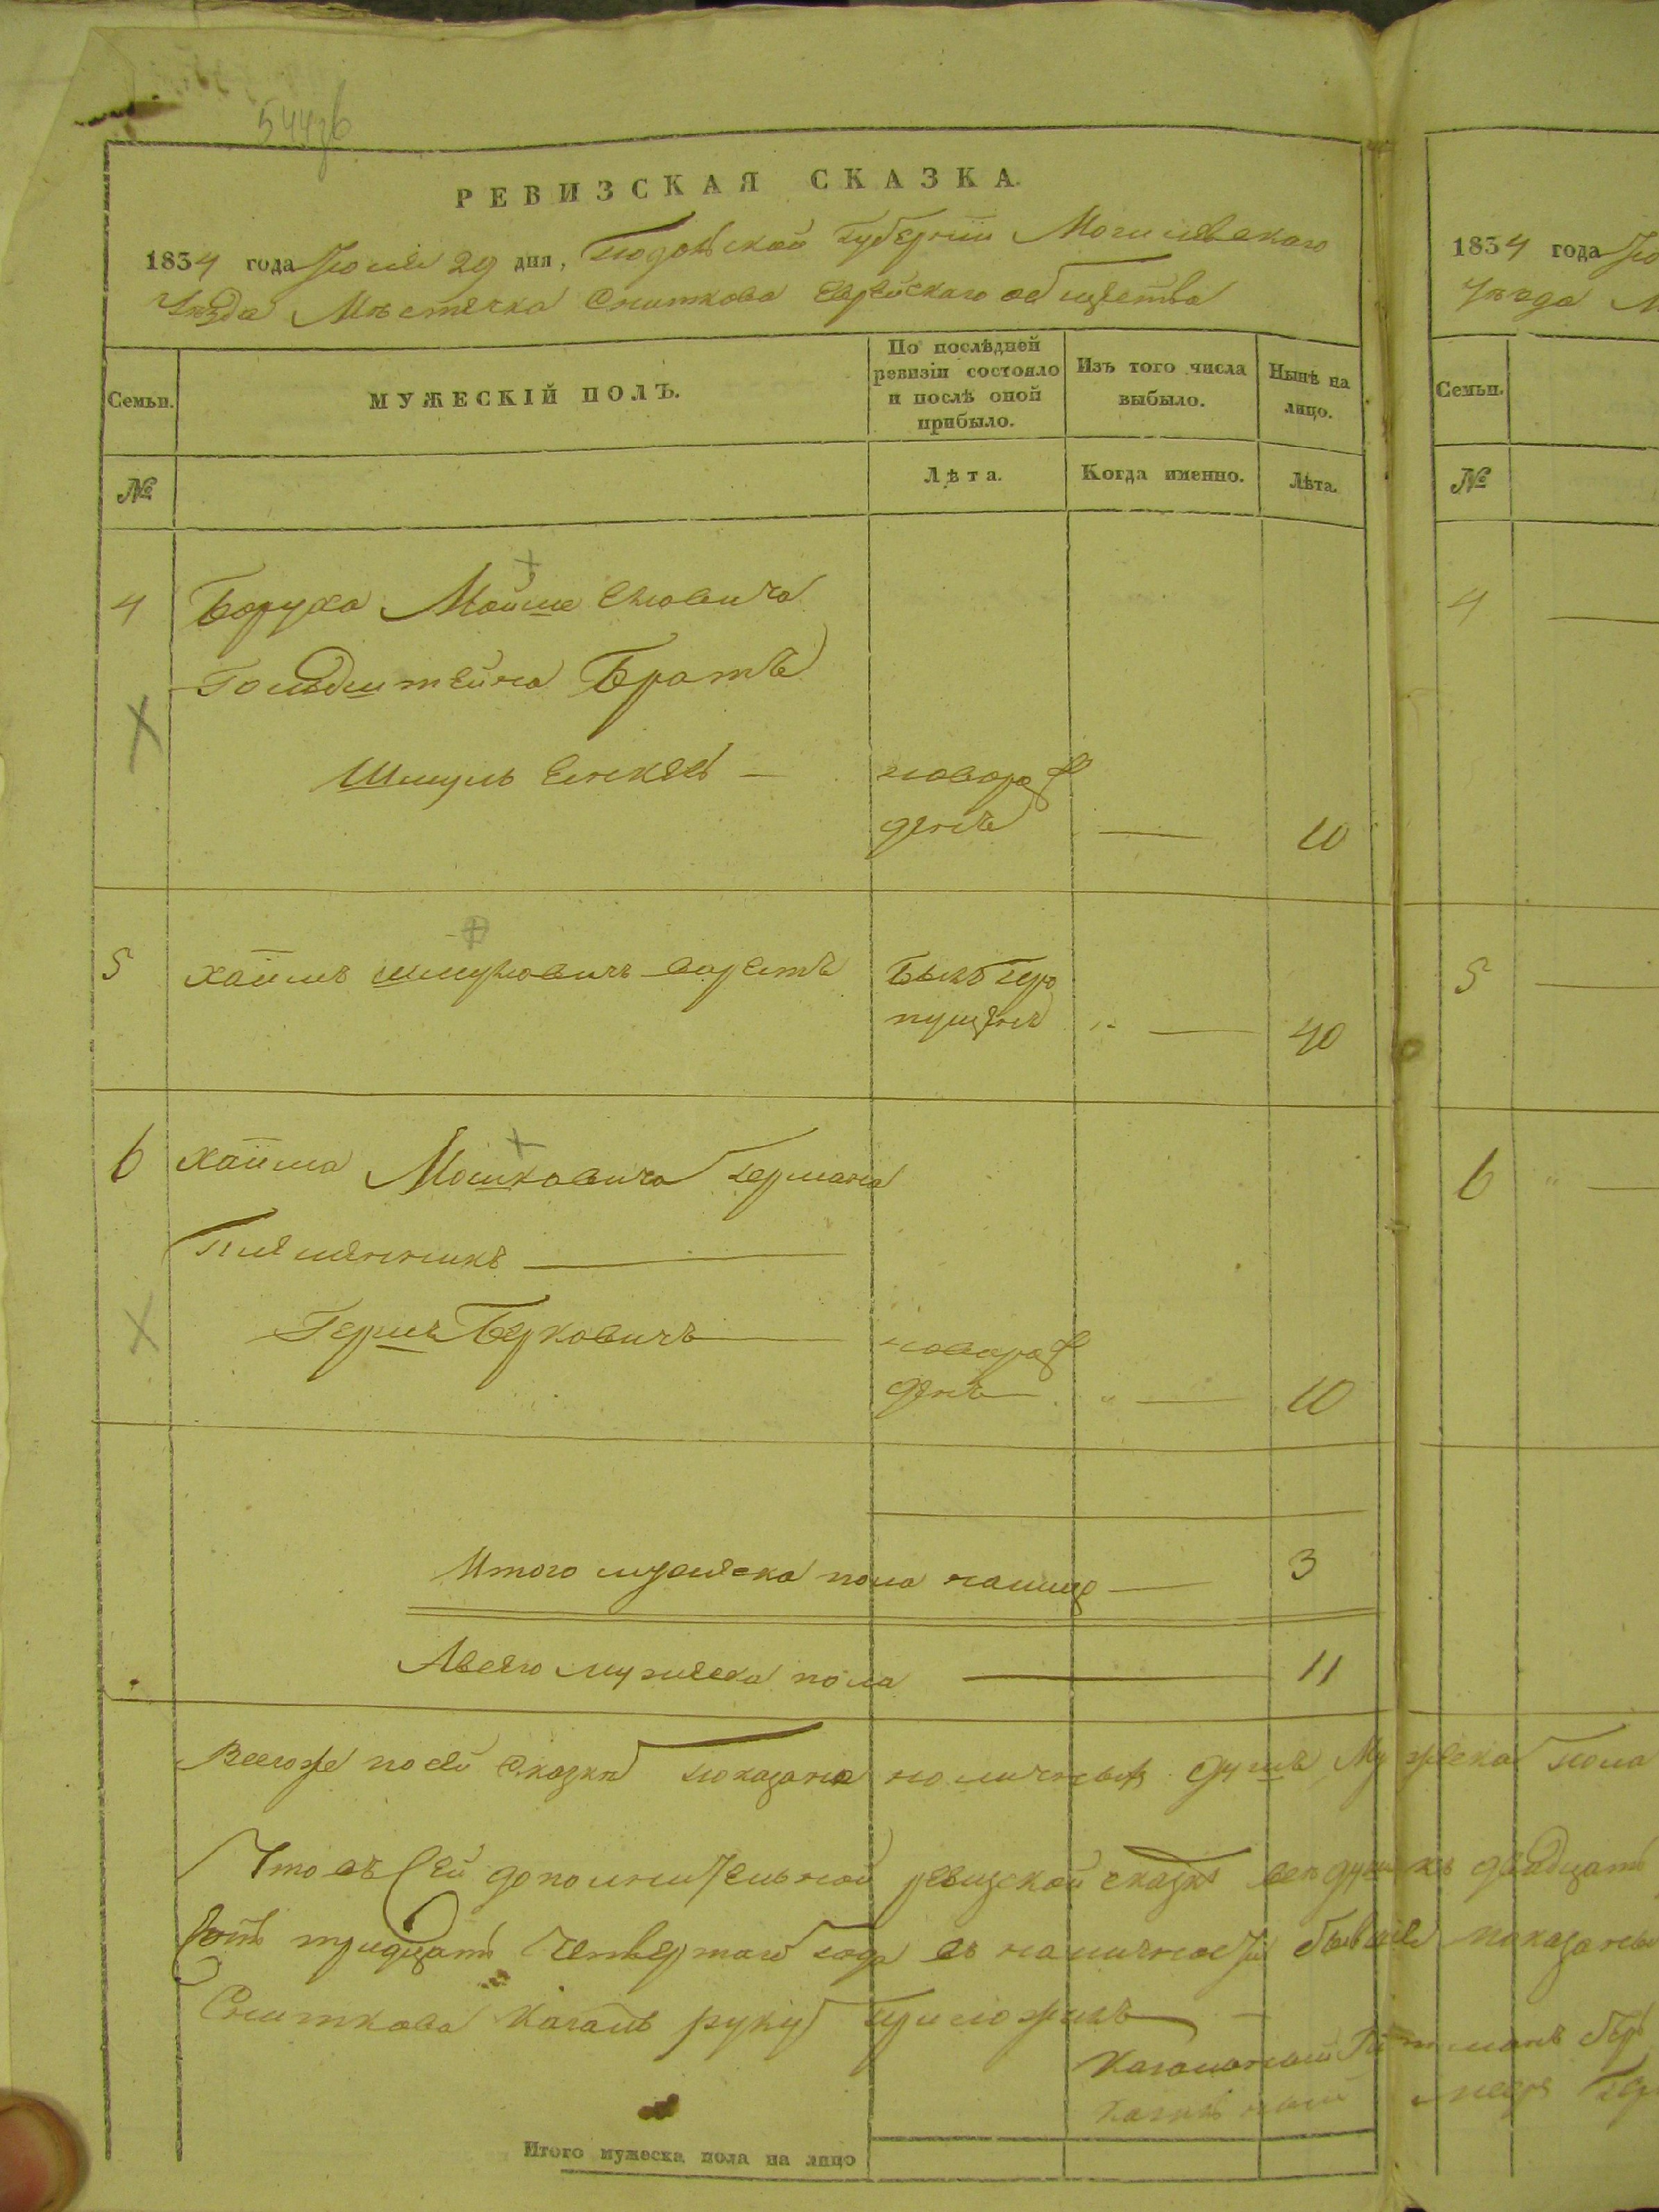 544зб
РЕВИЗСКАЯ СКАЗКА.
1834 года Іюля 29 дня, Подольской Губерніи Могилевскаго
Уѣзда Мѣстечка Сниткова Еврейскаго общества
Семьи.
МУЖЕСКІЙ ПОЛЪ.
По послѣдней ревизіи состояло и послѣ оной прибыло.
Изъ того числа выбыло.
Нынѣ на лицо.
№
Лѣта.
Когда именно.
Лѣта.
4 Боруха Мойше
Гольдштейна Братъ
Шмуль — новорож
денъ — 10
5 Хаимъ Шмулевичъ Былъ про
пущенъ „ — 40
6 Хаима Мошковича Германа
Племянникъ —
Гершъ Берковичъ — новорож
денъ „ — 10
Итого мужеска пола налицо — 3
Авсего мужеска пола — 11
Всегоже по сей сказки показано наличныхъ душъ Мужеска пола
Что въ Сей дополнительной ревизской сказкѣ всѣ души къ двадцать
тридцать Четвертаго года въ наличности бывшіе показаны
Сниткова Кагалъ руку приложилъ —
Кагальный
Кагальный
Итого мужеска пола на лицо
1834 года Ію
Уѣзда М
Семьи.
№
4 —
5 —
6 „ —